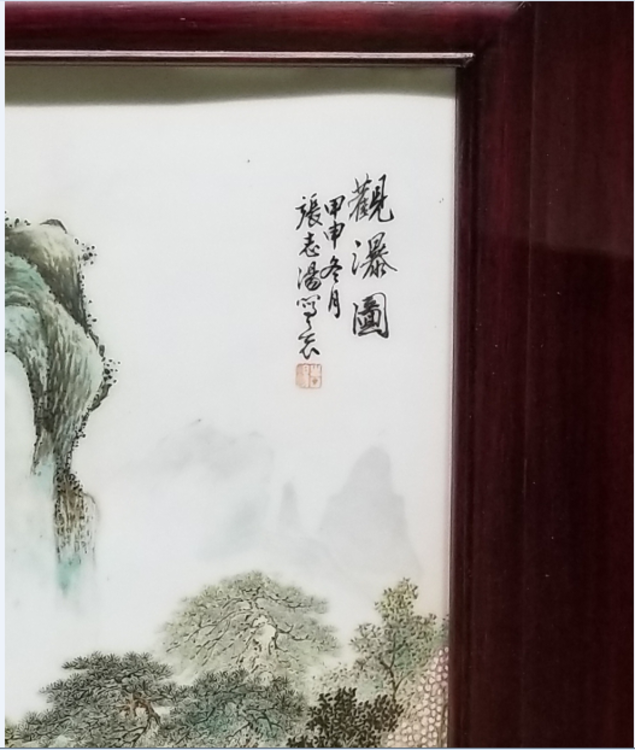 觀瀑圖
甲申冬月
張志湯寫